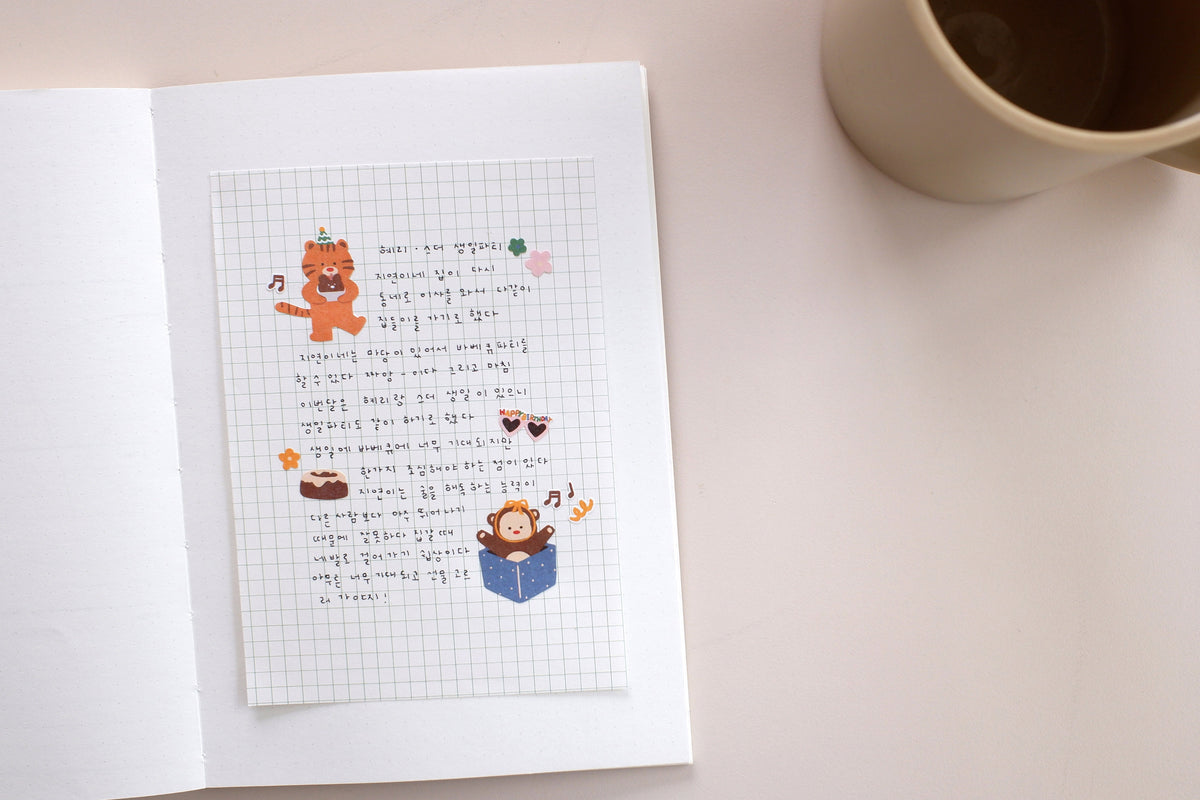 혜리·쓰더 생일파티
지연이네 집이 다시
동네로 이사를 와서 다같이
집들이를 가기로 했다
지연이네는 마당이 있어서 바베큐파티를
할 수 있다 짜앙-이다 그리고 마침
이번달은 혜리랑 쓰더 생일이 있으니
생일파티도 같이 하기로 했다
HAPPY BIRTHDAY
생일에 바베큐에 너무 기대되지만
한가지 조심해야 하는 점이 있다
지연이는 술을 해독하는 능력이
다른 사람보다 아주 뛰어나기
때문에 잘못하다 집갈때
네발로 걸어가기 십상이다
아무튼 너무 기대되고 선물 고르
러 가야지!